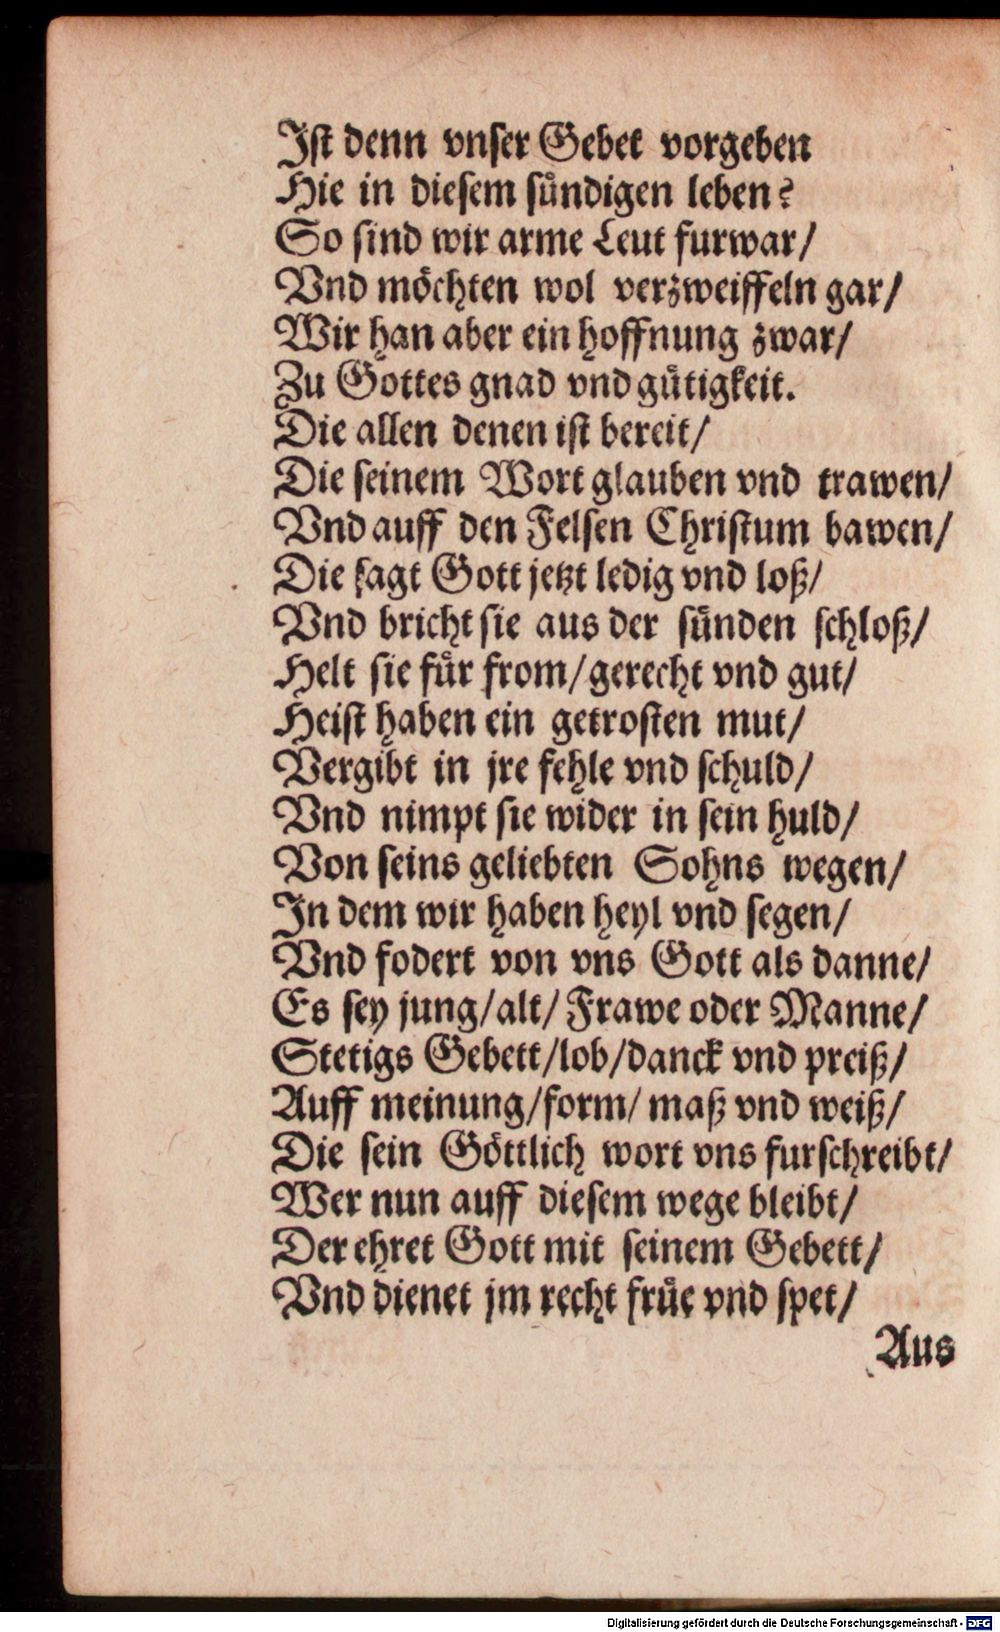 Ist denn vnser Gebet vorgeben
Hie in diesem sündigen leben?
So sind wir arme Leut furwar/
Vnd möchten wol verzweiffeln gar/
Wir han aber ein hoffnung zwar/
Zu Gottes gnad vnd gütigkeit.
Die allen denen ist bereit/
Die seinem Wort glauben vnd trawen/
Vnd auff den Felsen Christum bawen/
Die sagt Gott jetzt ledig vnd loß/
Vnd bricht sie aus der sünden schloß/
Helt sie für from/gerecht vnd gut/
Heist haben ein getrosten mut/
Vergibt in jre fehle vnd schuld/
Vnd nimpt sie wider in sein huld/
Von seins geliebten Sohns wegen/
In dem wir haben heyl vnd segen/
Vnd fodert von vns Gott als danne/
Es sey jung/alt/Frawe oder Manne/
Stetigs Gebett/lob/danck vnd preiß/
Auff meinung/form/maß vnd weiß/
Die sein Göttlich wort vns furschreibt/
Wer nun auff diesem wege bleibt/
Der ehret Gott mit seinem Gebett/
Vnd dienet jm recht früe vnd spet/
Aus
Digitalisierung gefördert durch die Deutsche Forschungsgemeinschaft - DFG